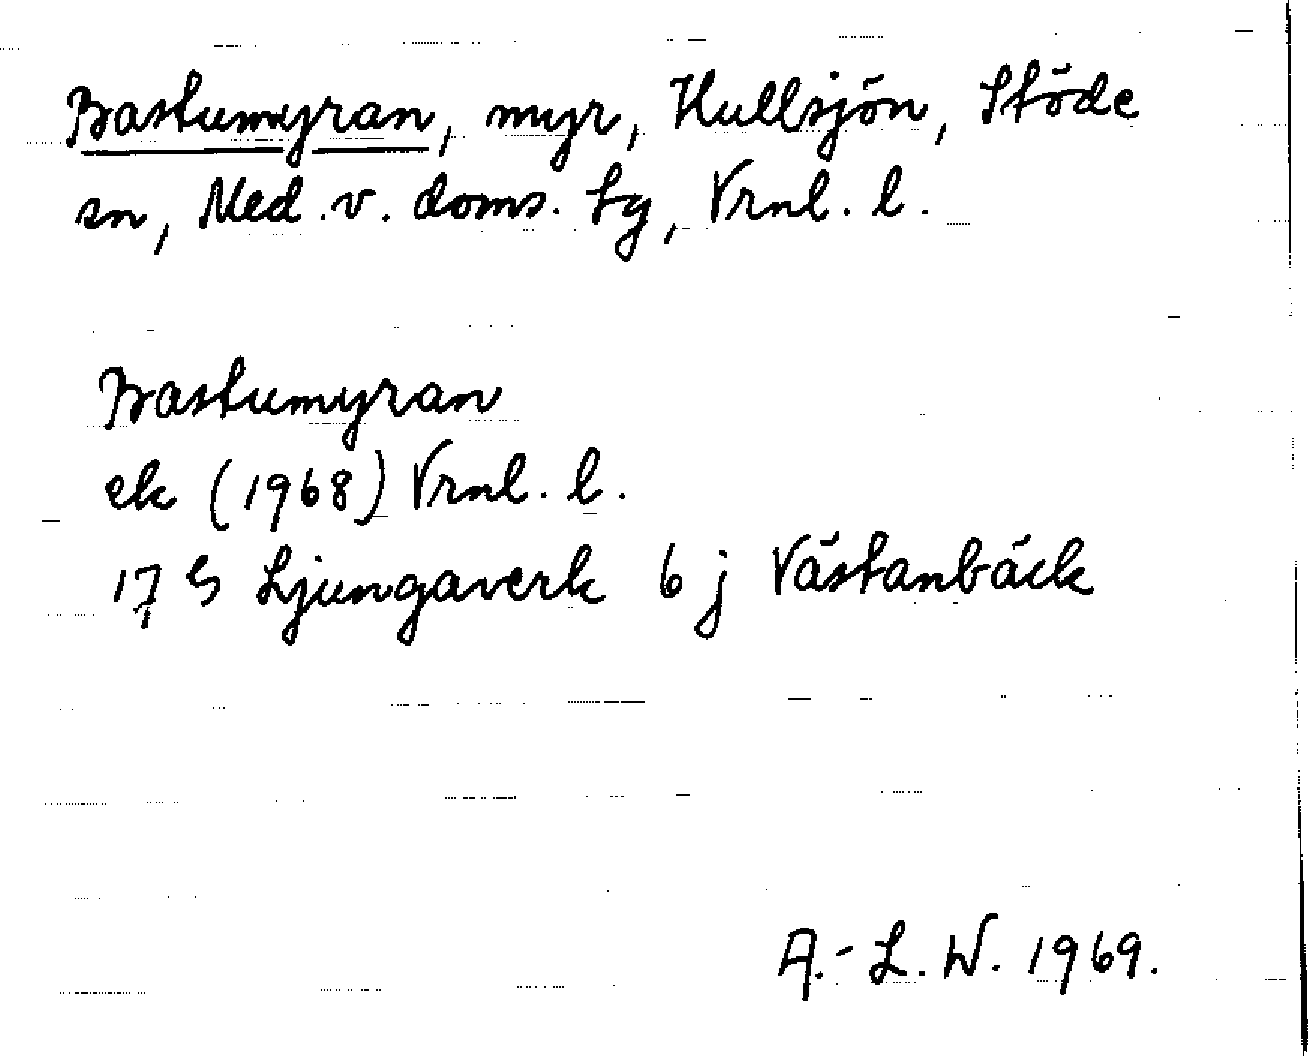 Bastumyran, myr, Hullsjön, Stöde
sn, Med. v. doms. tg, Vrnl. l.
Bastumyran
ek (1968) Vrnl. l.
17 G Ljungaverk 6 j Västanbäck
A.-L. W. 1969.